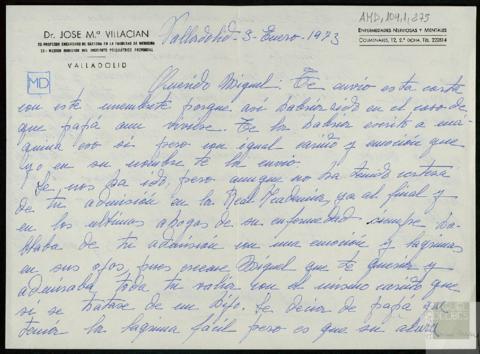 AMD, 109,1,275
Dr. JOSE Mª VILLACIAN
EX PROFESOR ENCARGADO DE CATEDRA EN LA FACULTAD DE MEDICINA
EX MEDICO DIRECTOR DEL INSTITUTO PSIQUIATRICO PROVINCIAL
VALLADOLID
ENFERMEDADES NERVIOSAS Y MENTALES
COLMENARES, 12, 2.º DCHA. TEL. 222614
Valladolid - 3 - Enero - 1973
MD
Querido Miguel: Te envio esta carta
con este membrete porque así habria sido en el caso de
que papá aun viviese. Te la habria escrito a má
quina eso si pero con igual cariño y emoción que
yo en su nombre te la envio
Se nos ha ido, pero aunque no ha tenido certeza
de tu admisión en la Real Academia, ya al final y
en los ultimos ahogos de su enfermedad siempre ha
blaba de tu admision con una emoción y lagrimas
en sus ojos, pues creeme Miguel que te queria y
admiraba toda tu valia con el mismo cariño que
si se tratase de un hijo. Se decia de papá que
tenía la lagrima fácil pero es que su alma